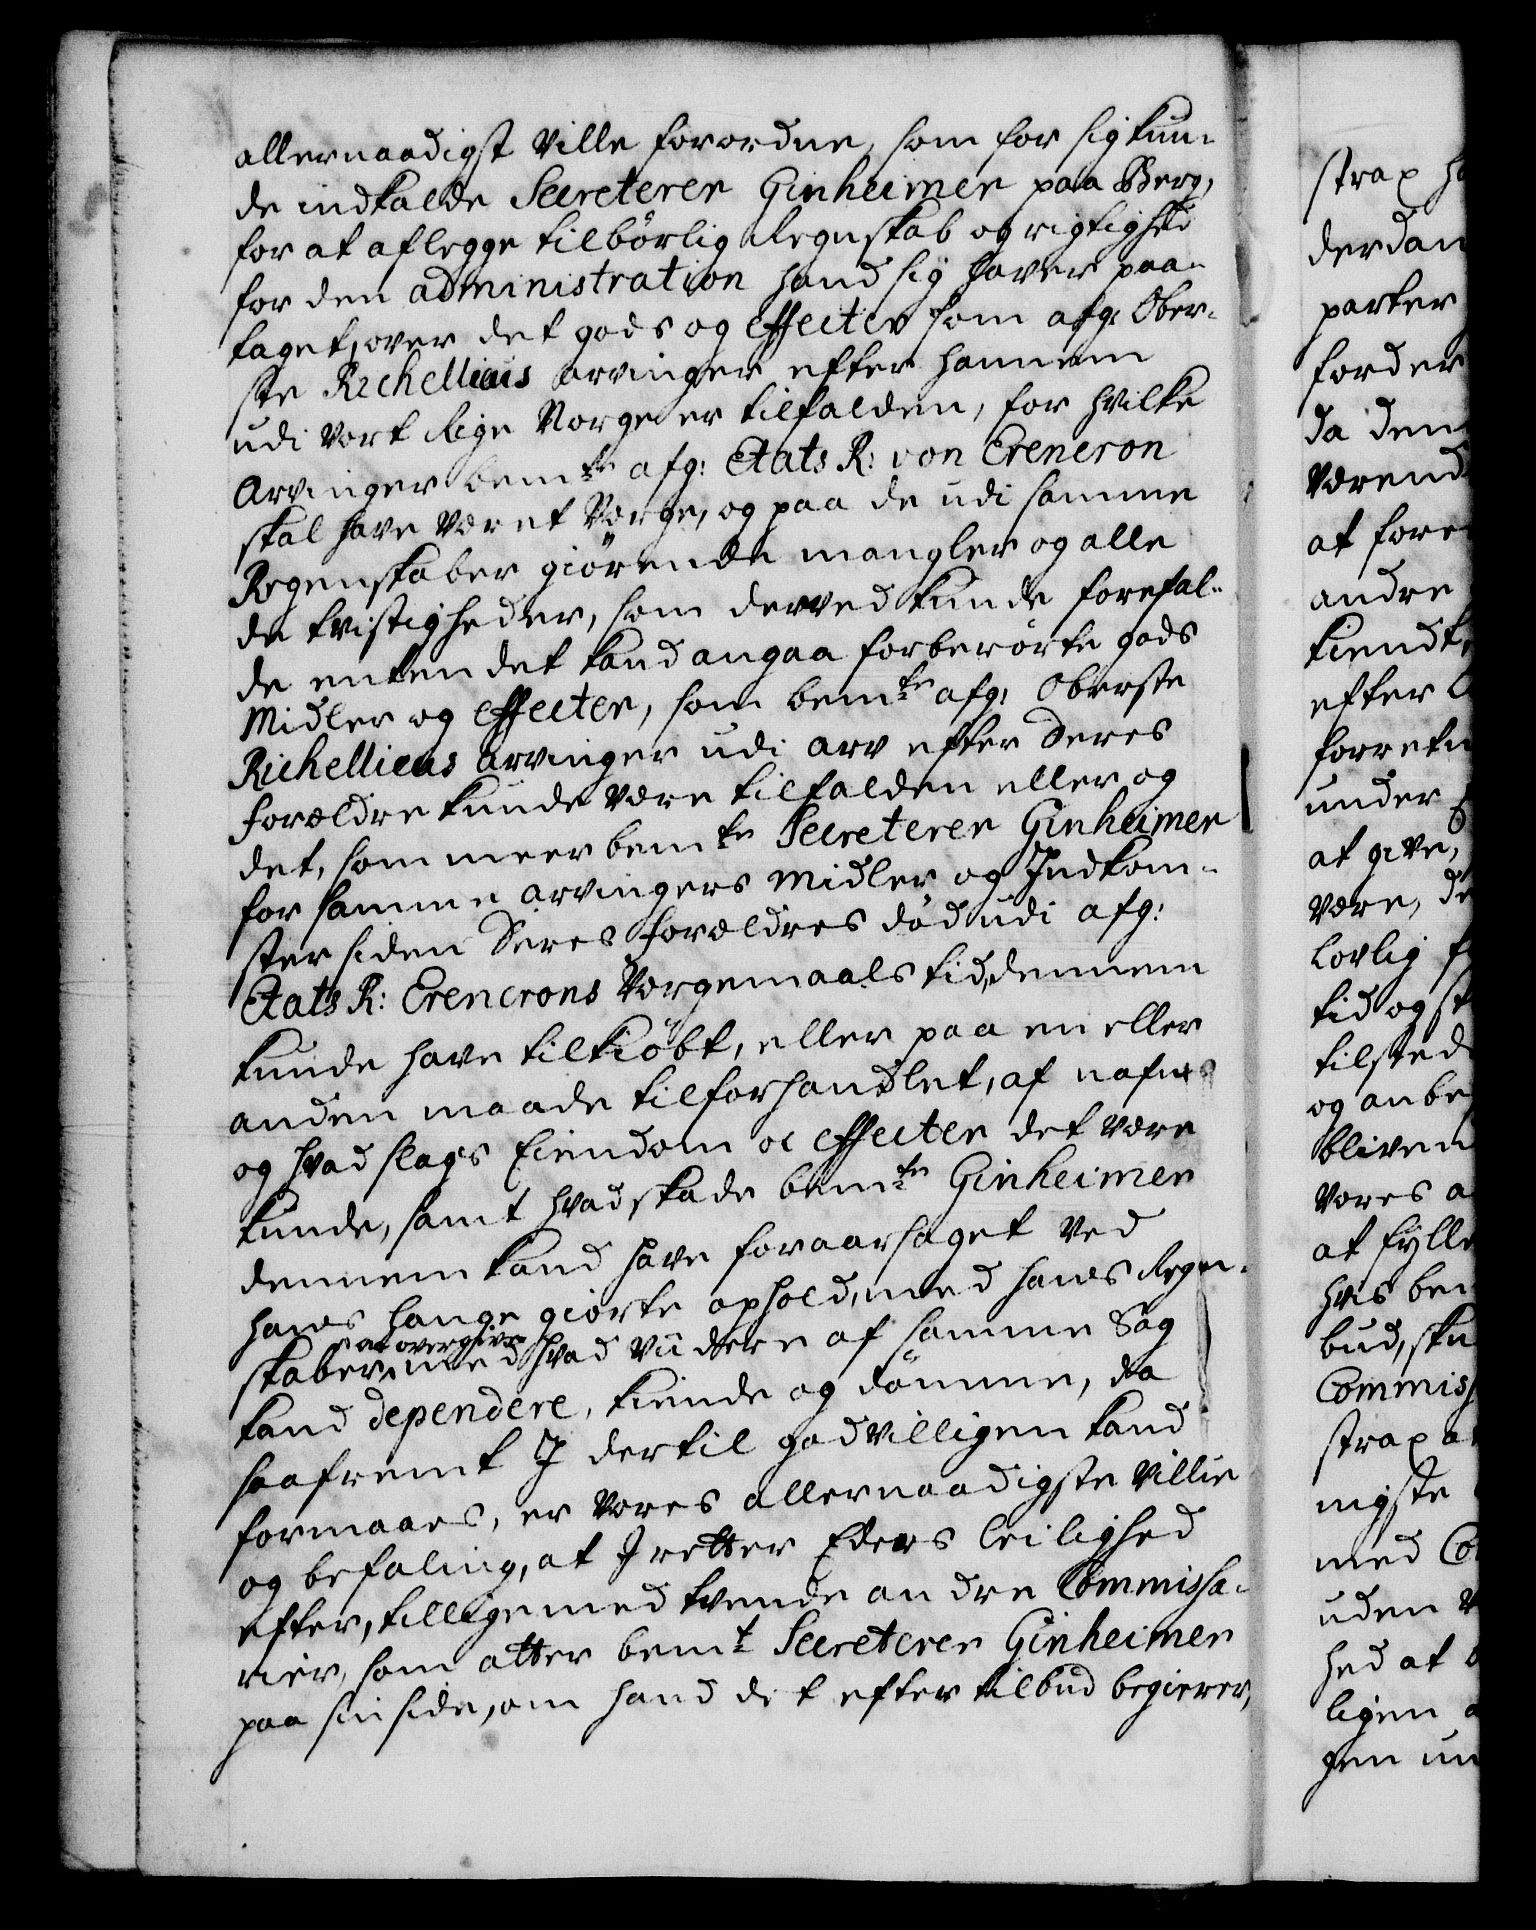 allernaadigst Ville forordne, som for sig kun-
de indkalde Secreterer Ginheimer paa Berg,
for at aflegge tilbörlig Regnskab og rigtighed
for den administration hand sig haver paa-
taget, over det gods og effecter som afg: Ober-
ste Richellieus arvinger efter hannem
udi Vort Rige Norge er tilfalden, for hvilke
Arvinger bemte afg: Etats R: von Erencron
skal have Været Værge, og paa de udi samme
Regenskaber giörende mangler og alle
de tvistigheder, som derved kunde forefal-
de enten det kand angaa forberörte gods
Midler og effecter, som bemte afg: Oberste
Richellieus arvinger udi arv efter deres
Forældre kunde være tilfalden eller og
det, som meer bemte Secreterer Ginheimer
for samme arvingers Midler og Indkom-
ster siden deres Forældres död udi afg:
Etats R: Erencrons Værgemaals tid, dennem
kunde have tilkiöbt, eller paa en eller
anden maade tilforhandlet, af nafn
og hvad slags Eiendom oc effecter det være
kunde, samt hvad skade bemte Ginheimer
dennem kand have foraarsaget Ved
hans lange giorte ophold, med hans Regn-
skaber at overgive med hvad viidere af samme Sag
kand dependere, kiende og dömme, da
saafremt I dertil godvilligen kand
formaaes, er Vores allernaadigste Villie
og befaling, at I retter Eders leilighed
efter, tillige med tvende andre Commissa-
rier, som atter bemt Secreterer Ginheimer
paa sin side, om hand det efter tilbud begierer,
strax
derdan
parter
forder
da den
Værend
at fore
andre
kiendt
efter
forretn
under
at give,
være, de
lovlig
tid og st
tilsted
og anbe
bliven
Vores a
at fylle
hvis bem
bud, sku
Commiss
strax a
nigste
med Co
uden
hed at
ligen
gen un